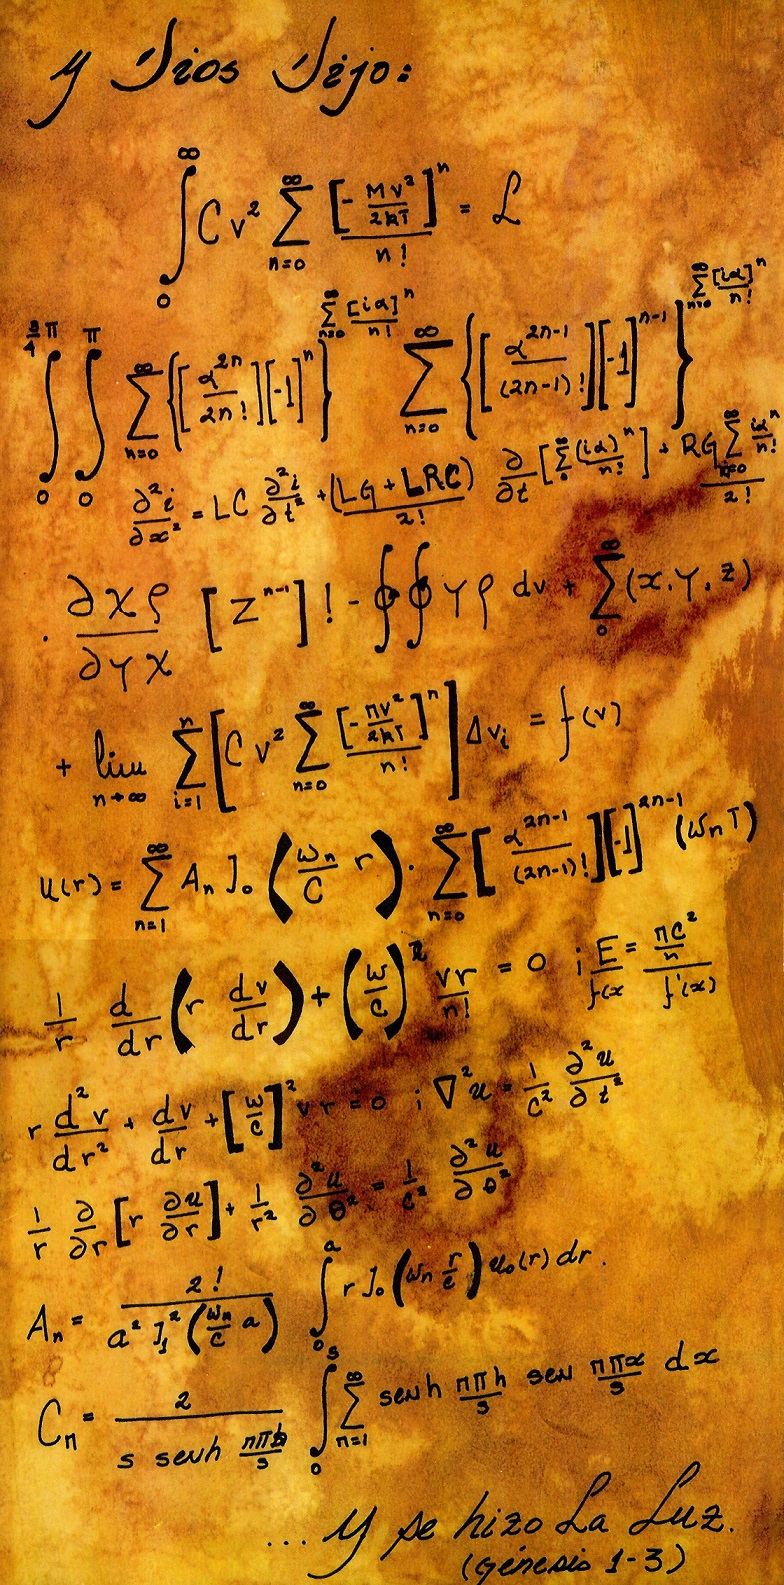 y Dios Dijo:
∫₀^∞ C v² ∑_{n=0}^∞ [- Mv²/2kT]ⁿ / n! = L
∫₀^{3/4 π} ∫₀^π ∑_{n=0}^∞ {[α²ⁿ / 2n!][-1]ⁿ}^{∑_{n=0}^∞ [iα]ⁿ/n!} ∑_{n=0}^∞ {[α²ⁿ⁻¹ / (2n-1)!][-1]ⁿ⁻¹}^{∑_{n=0}^∞ [iα]ⁿ/n!}
∂²i/∂x² = LC ∂²i/∂t² + (LG + LRC)/2! ∂/∂t [∑₀^∞ (iα)ⁿ/n!] + RG ∑_{n=0}^∞ iαⁿ/n! / 2!
. ∂χρ/∂γχ [Zⁿ⁻¹]! - ∮∮ γρ dv + ∑₀^∞ (x, y, z)
+ lim_{n→∞} ∑_{i=1}^n [C v² ∑_{n=0}^∞ [- Πv²/2kT]ⁿ / n!] Δvᵢ = f(v)
u(r) = ∑_{n=1}^∞ Aₙ J₀ (ωₙ/C r) · ∑_{n=0}^∞ [α²ⁿ⁻¹ / (2n-1)!][-1]²ⁿ⁻¹ (ωₙT)
1/r d/dr (r dv/dr) + (ω/c)² vr/n! = 0 ; E/f(x = ΠC²/n / f'(x)
r d²v/dr² + dv/dr + [ω/c]² vr = 0 ; ∇²u = 1/c² ∂²u/∂t²
1/r ∂/∂r [r ∂u/∂r] + 1/r² ∂²u/∂θ² = 1/c² ∂²u/∂θ²
Aₙ = 2! / a² J₁² (ωₙ/C a) ∫₀^a r J₀ (ωₙ r/c) u₀(r) dr .
Cₙ = 2 / s senh nπb/s ∫₀^s ∑_{n=1}^∞ senh nπh/s sen nπx/s dx
... y se hizo La Luz.
(génesis 1-3)